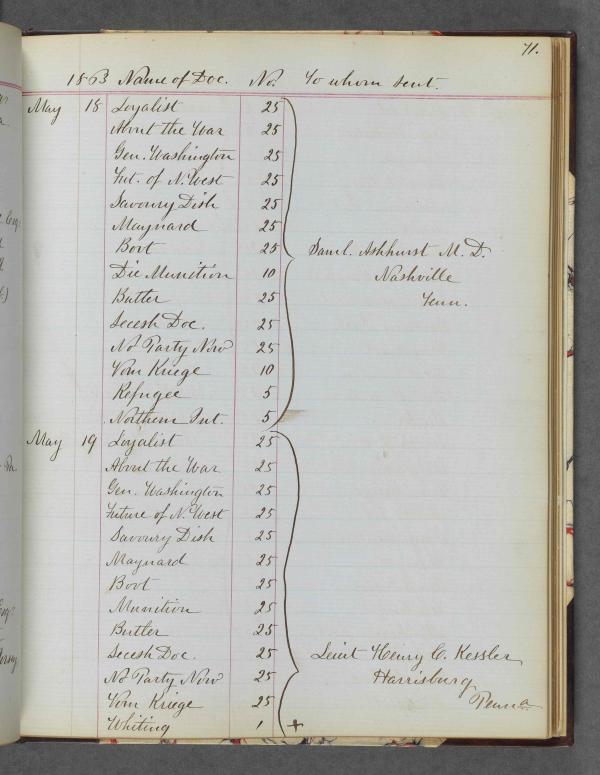 71.
1863 Name of Doc. No. To whom sent.
May 18 Loyalist 25
About the War 25
Gen. Washington 25
Fut. of N. West 25
Savoury Dish 25
Maynard 25
Boot 25 Saml. Ashhurst M. D.
Die Munition 10 Nashville
Butler 25 Tenn.
Secesh Doc. 25
No Party Now 25
Vom Kriege 10
Refugee 5
Northern Int. 5
May 19 Loyalist 25
About the War 25
Gen. Washington 25
Future of N. West 25
Savoury Dish 25
Maynard 25
Boot 25
Munition 25
Butler 25
Secesh Doc. 25 Lieut Henry C. Kessler
No Party Now 25 Harrisburg
Vom Kriege 25 Penna
Whiting 1 +